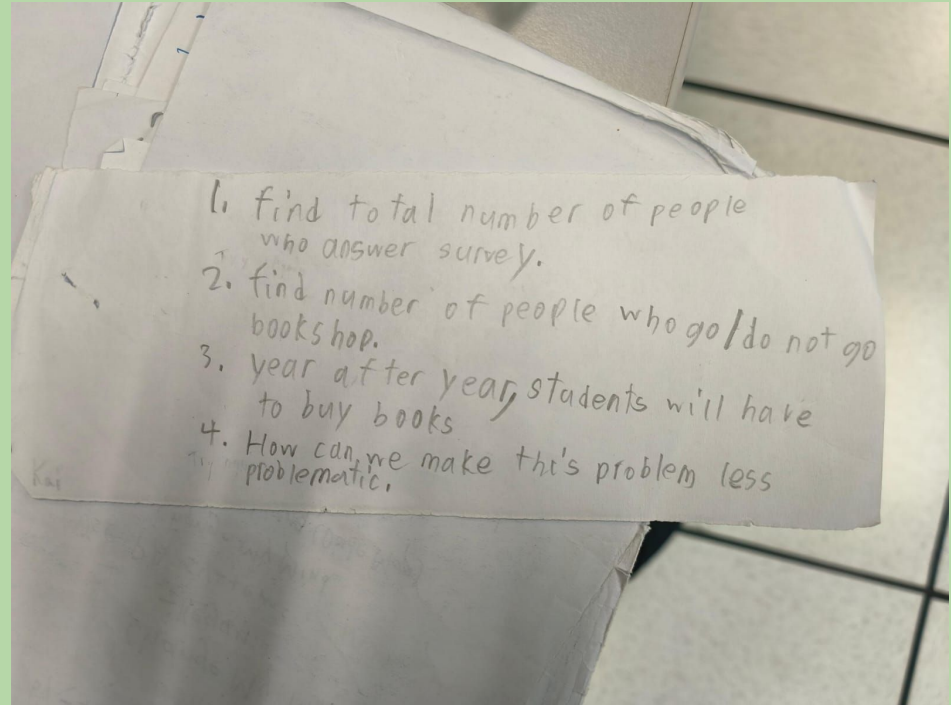 1. find total number of people
who answer survey.
2. find number of people who go/do not go
bookshop.
3. year after year, students will have
to buy books
4. How can we make this problem less
problematic.
Kai